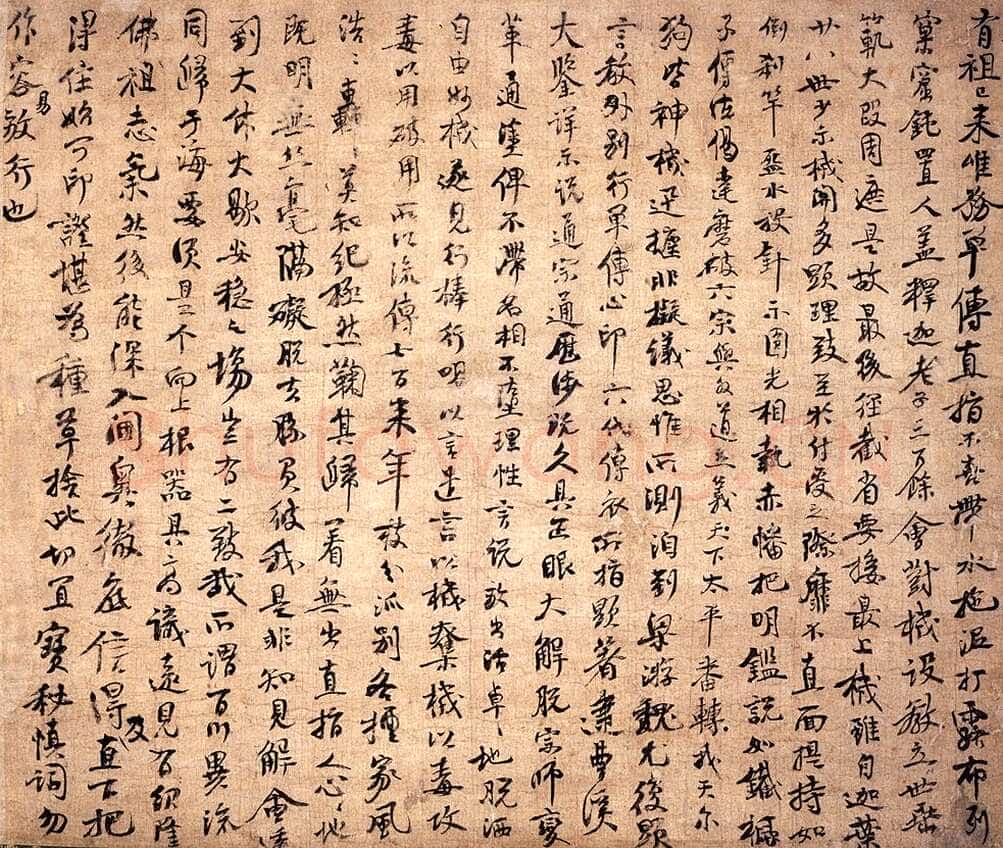 有祖已来唯務單傳直指不喜帶水拖泥打露布列
窠窟鈍置人盖釋迦老子三百餘會對機設教立世垂
範大段周遮是故最後徑截省要接最上機雖自迦葉
廿八世少示機関多顕理致至於付受之際靡不直面提持如
倒刹竿盋水投針示圓光相執赤幡把明鑑説如鐵橛
子傳法偈達磨破六宗與外道立義天下太平番轉我天尔
狗皆神機迅捷非擬議思惟所測洎到梁游魏尤復顕
言教外別行單傳心印六代傳衣所指顕著逮曹溪
大鑒詳示説通宗通歷涉既久具正眼大解脱宗師變
革通塗俾不滯名相不墮理性言説放出活卓〻地脱洒
自由妙機遂見行棒行喝以言遣言以機奪機以毒攻
毒以用破用所以流傳七百来年枝分派別各擅家風
浩〻轟〻莫知紀極然鞠其歸著無出直指人心〻地
既明無絲毫隔礙脱去勝負彼我是非知見解會透
到大休大歇安穩之場豈有二致哉所謂百川異流
同歸于海要須是个向上根器具高識遠見有紹隆
佛祖志氣然後能深入閫奥徹底信得及直下把
得住始可印證堪為種草捨此切宜寶秘慎詞勿
作容易放行也